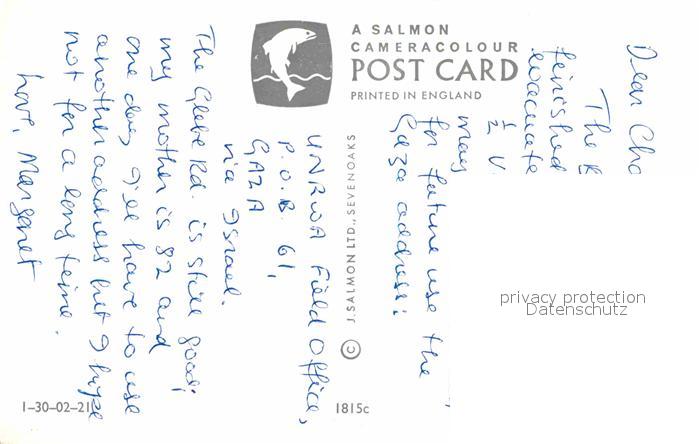 A SALMON
CAMERACOLOUR
POST CARD
PRINTED IN ENGLAND
Dear
The
finished
evacuate
may
for future use the
Gaza address:
UNRWA Field Office,
P.O.B. 61,
GAZA
via Israel.
The Glebe Rd. is still good;
my mother is 82 and
one day I'll have to use
another address but I hope
not for a long time.
Love, Margaret
© J. SALMON LTD., SEVENOAKS
1-30-02-21
1815c
privacy protection
Datenschutz